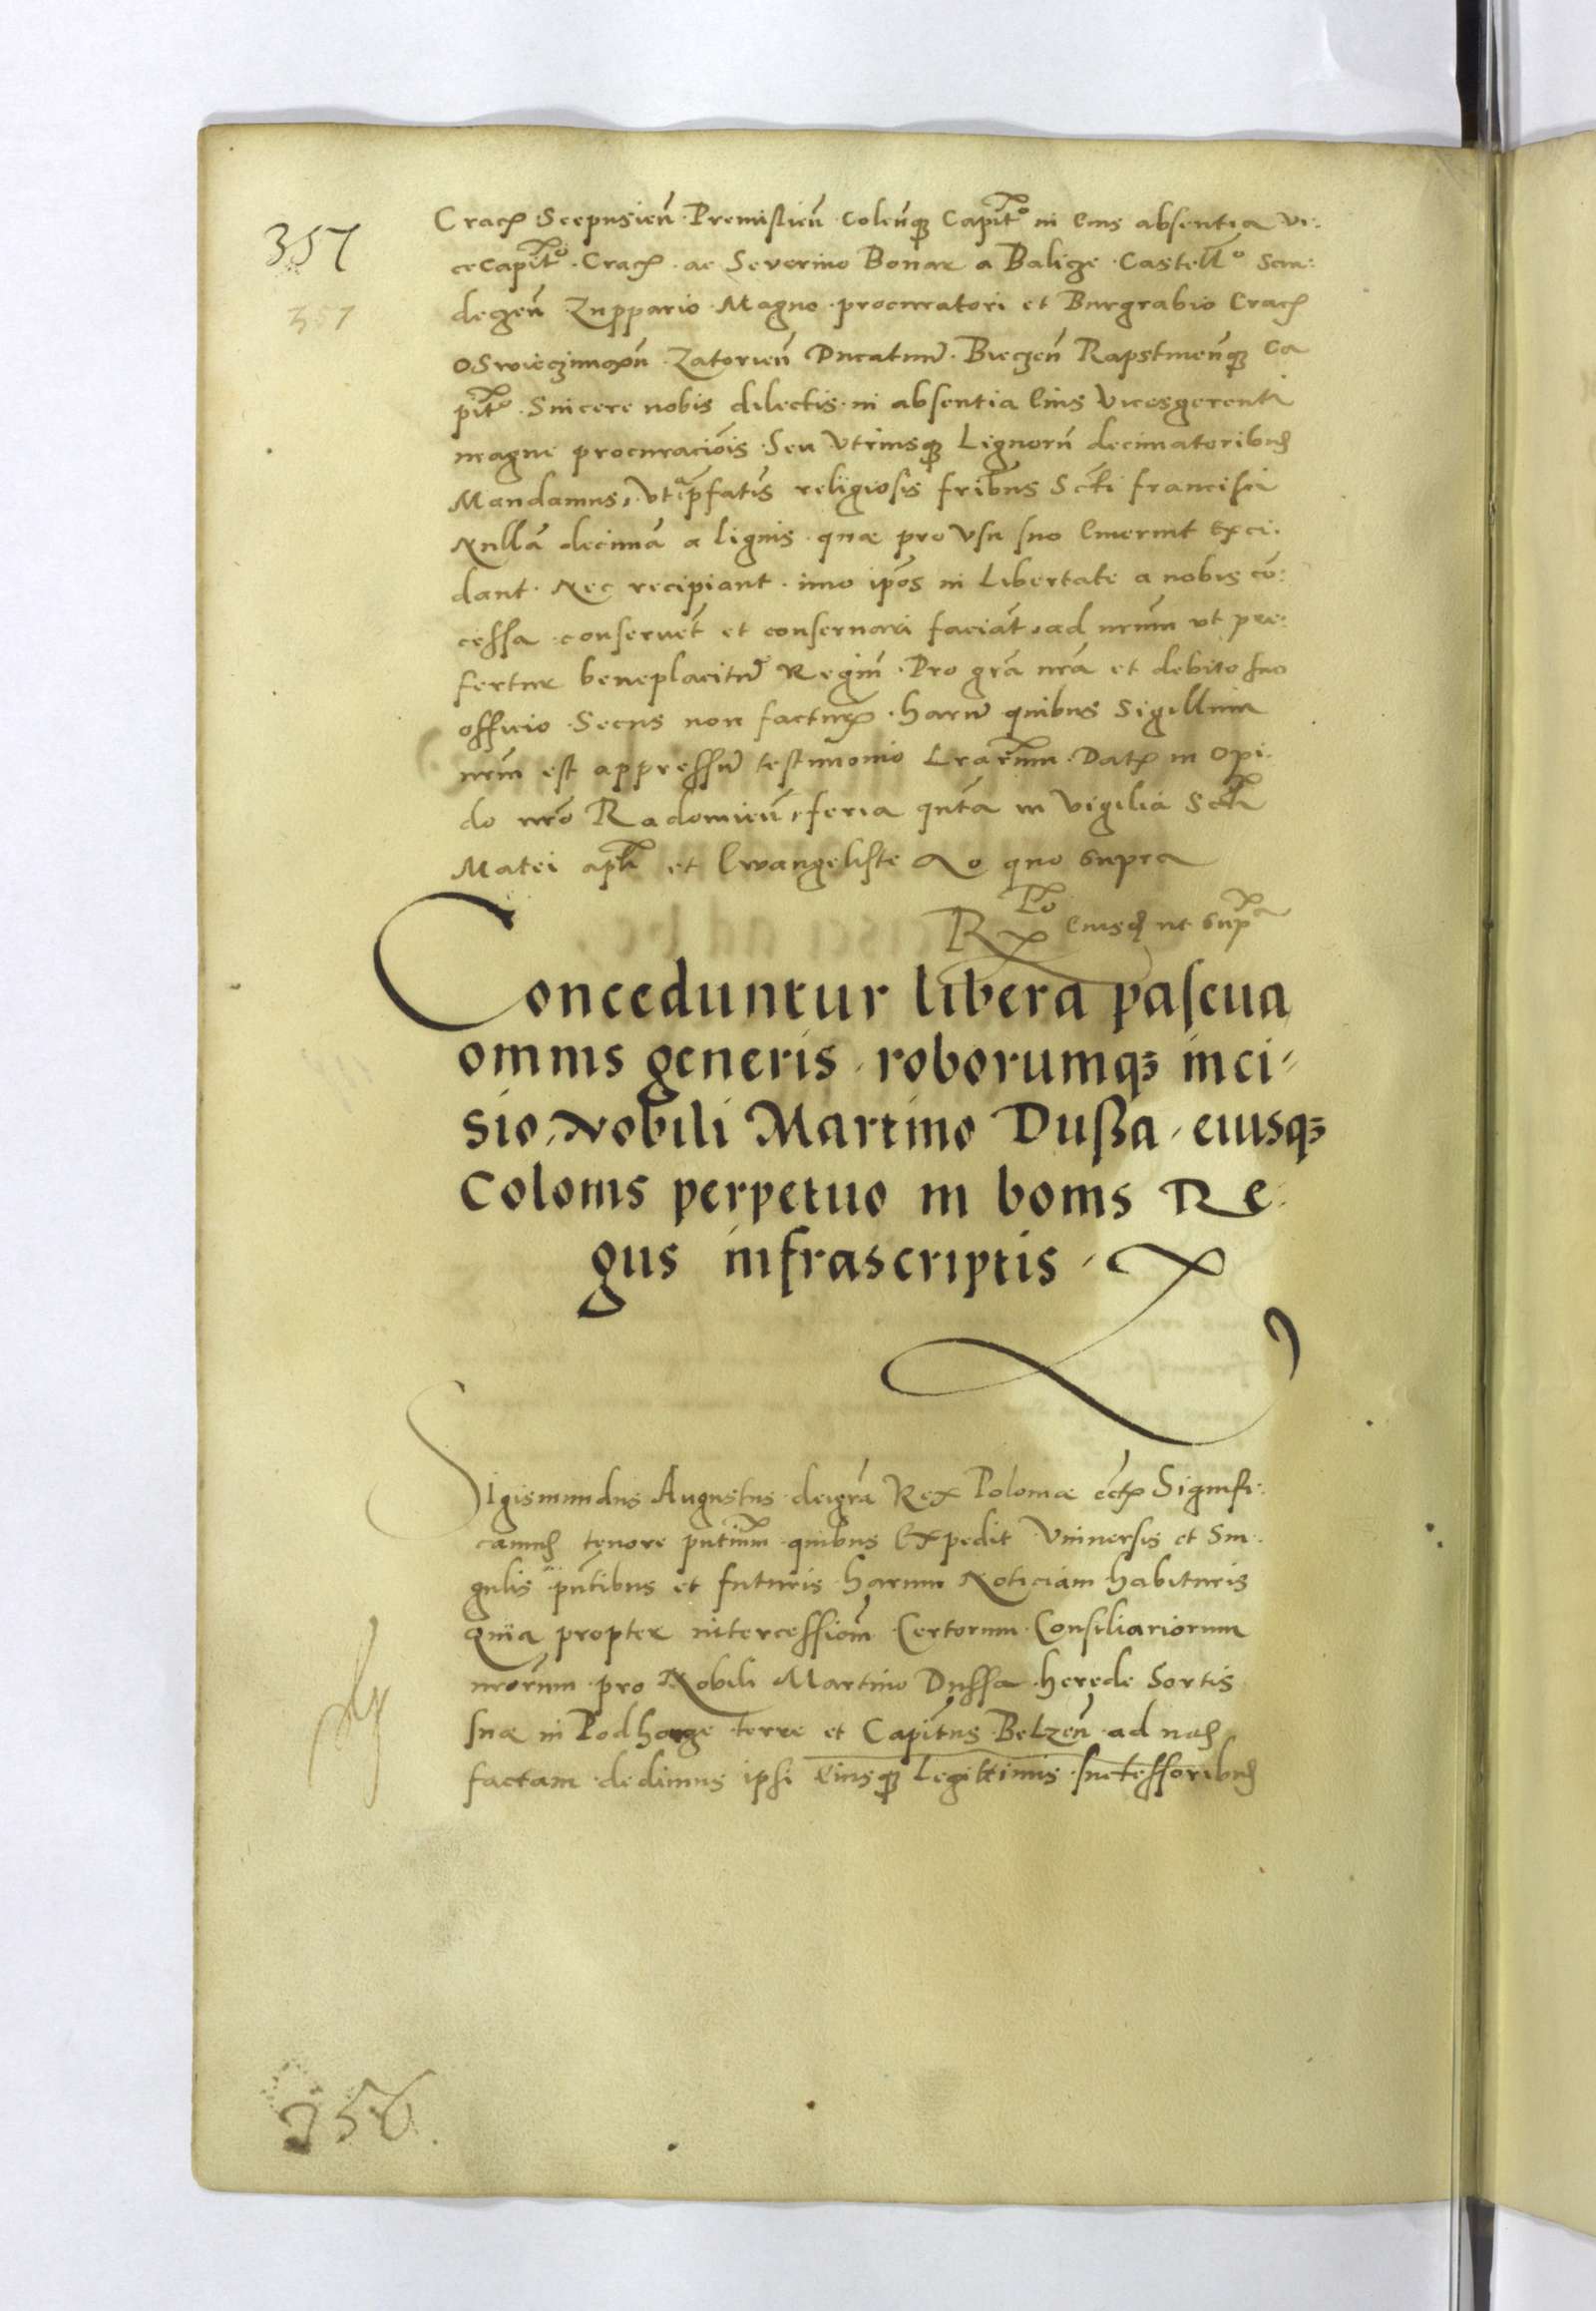 357
357
Cracꝭ Scepusien̄ · Premislien̄ · Colen̄qꝫ Capit̃o in Eius absentia vi:
ceCapit̃o · Cracꝭ · ac Severino Bonar a Balicze · Castell̃o San:
deczen̄ Zuppario · Magno · procuratori et Burgrabio Cracꝭ
Oswieczimen̄ · Zatorien̄ Ducatuū · Bieczen̄ Rapstinen̄qꝫ Ca
pit̃o · Sincere nobis dilectis · in absentia Eius vicesgerenti
magne procuraciōis · Seu vtriusqꝫ Lignorū decimatoribꝰ
Mandamus, vt a p̄fatis religiosis fribūs Scti francisci
Nullā decimā a lignis · quae pro vsu suo Emerint Exci:
dant · Nec recipiant · imo ipōs in Libertate a nobis cō:
cessa · conservēt et conservari faciāt, ad nrūm vt pre:
fertur beneplacitū Regiū · Pro grā nrā et debito suo
officio · Secus non facturꝭ · harū quibus Sigillum
nrūm est appressū testimonio Lrārum · Datꝭ in Opi:
do nrō Radomien̄, feria qntā in vigilia Scti
Matei apl̄i et Ewangeliste Ao quo supra
Rꝭ Pto Eiusdꝫ ut supꝭa
Conceduntur libera pascua
omnis generis · roborumqꝫ inci-
sio, Nobili Martino Dußa, eiusqꝫ
Colonis perpetuo in bonis Re:
gus infrascriptis ·
Sigismundus Augustus · dei grā Rex Poloniae ectꝭ Signifi:
camꝰ tenore pn̄tium quibus Expedit Vniversis et Sin:
gulis pn̄tibus et futuris · harum Noticiam habituris
Quia propter intercessiōm Certorum · Consiliariorum
nrōrum · pro Nobili Martino Dussa · herede Sortis
suae in Podhorze · terre et Capitūs · Belzen̄ · ad nos
factam · dedimus ipsi Eiusqꝫ Legittimis · successoribꝰ
356